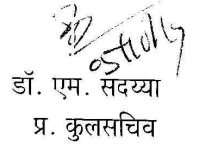 डॉ. एम. सदय्या
प्र. कुलसचिव